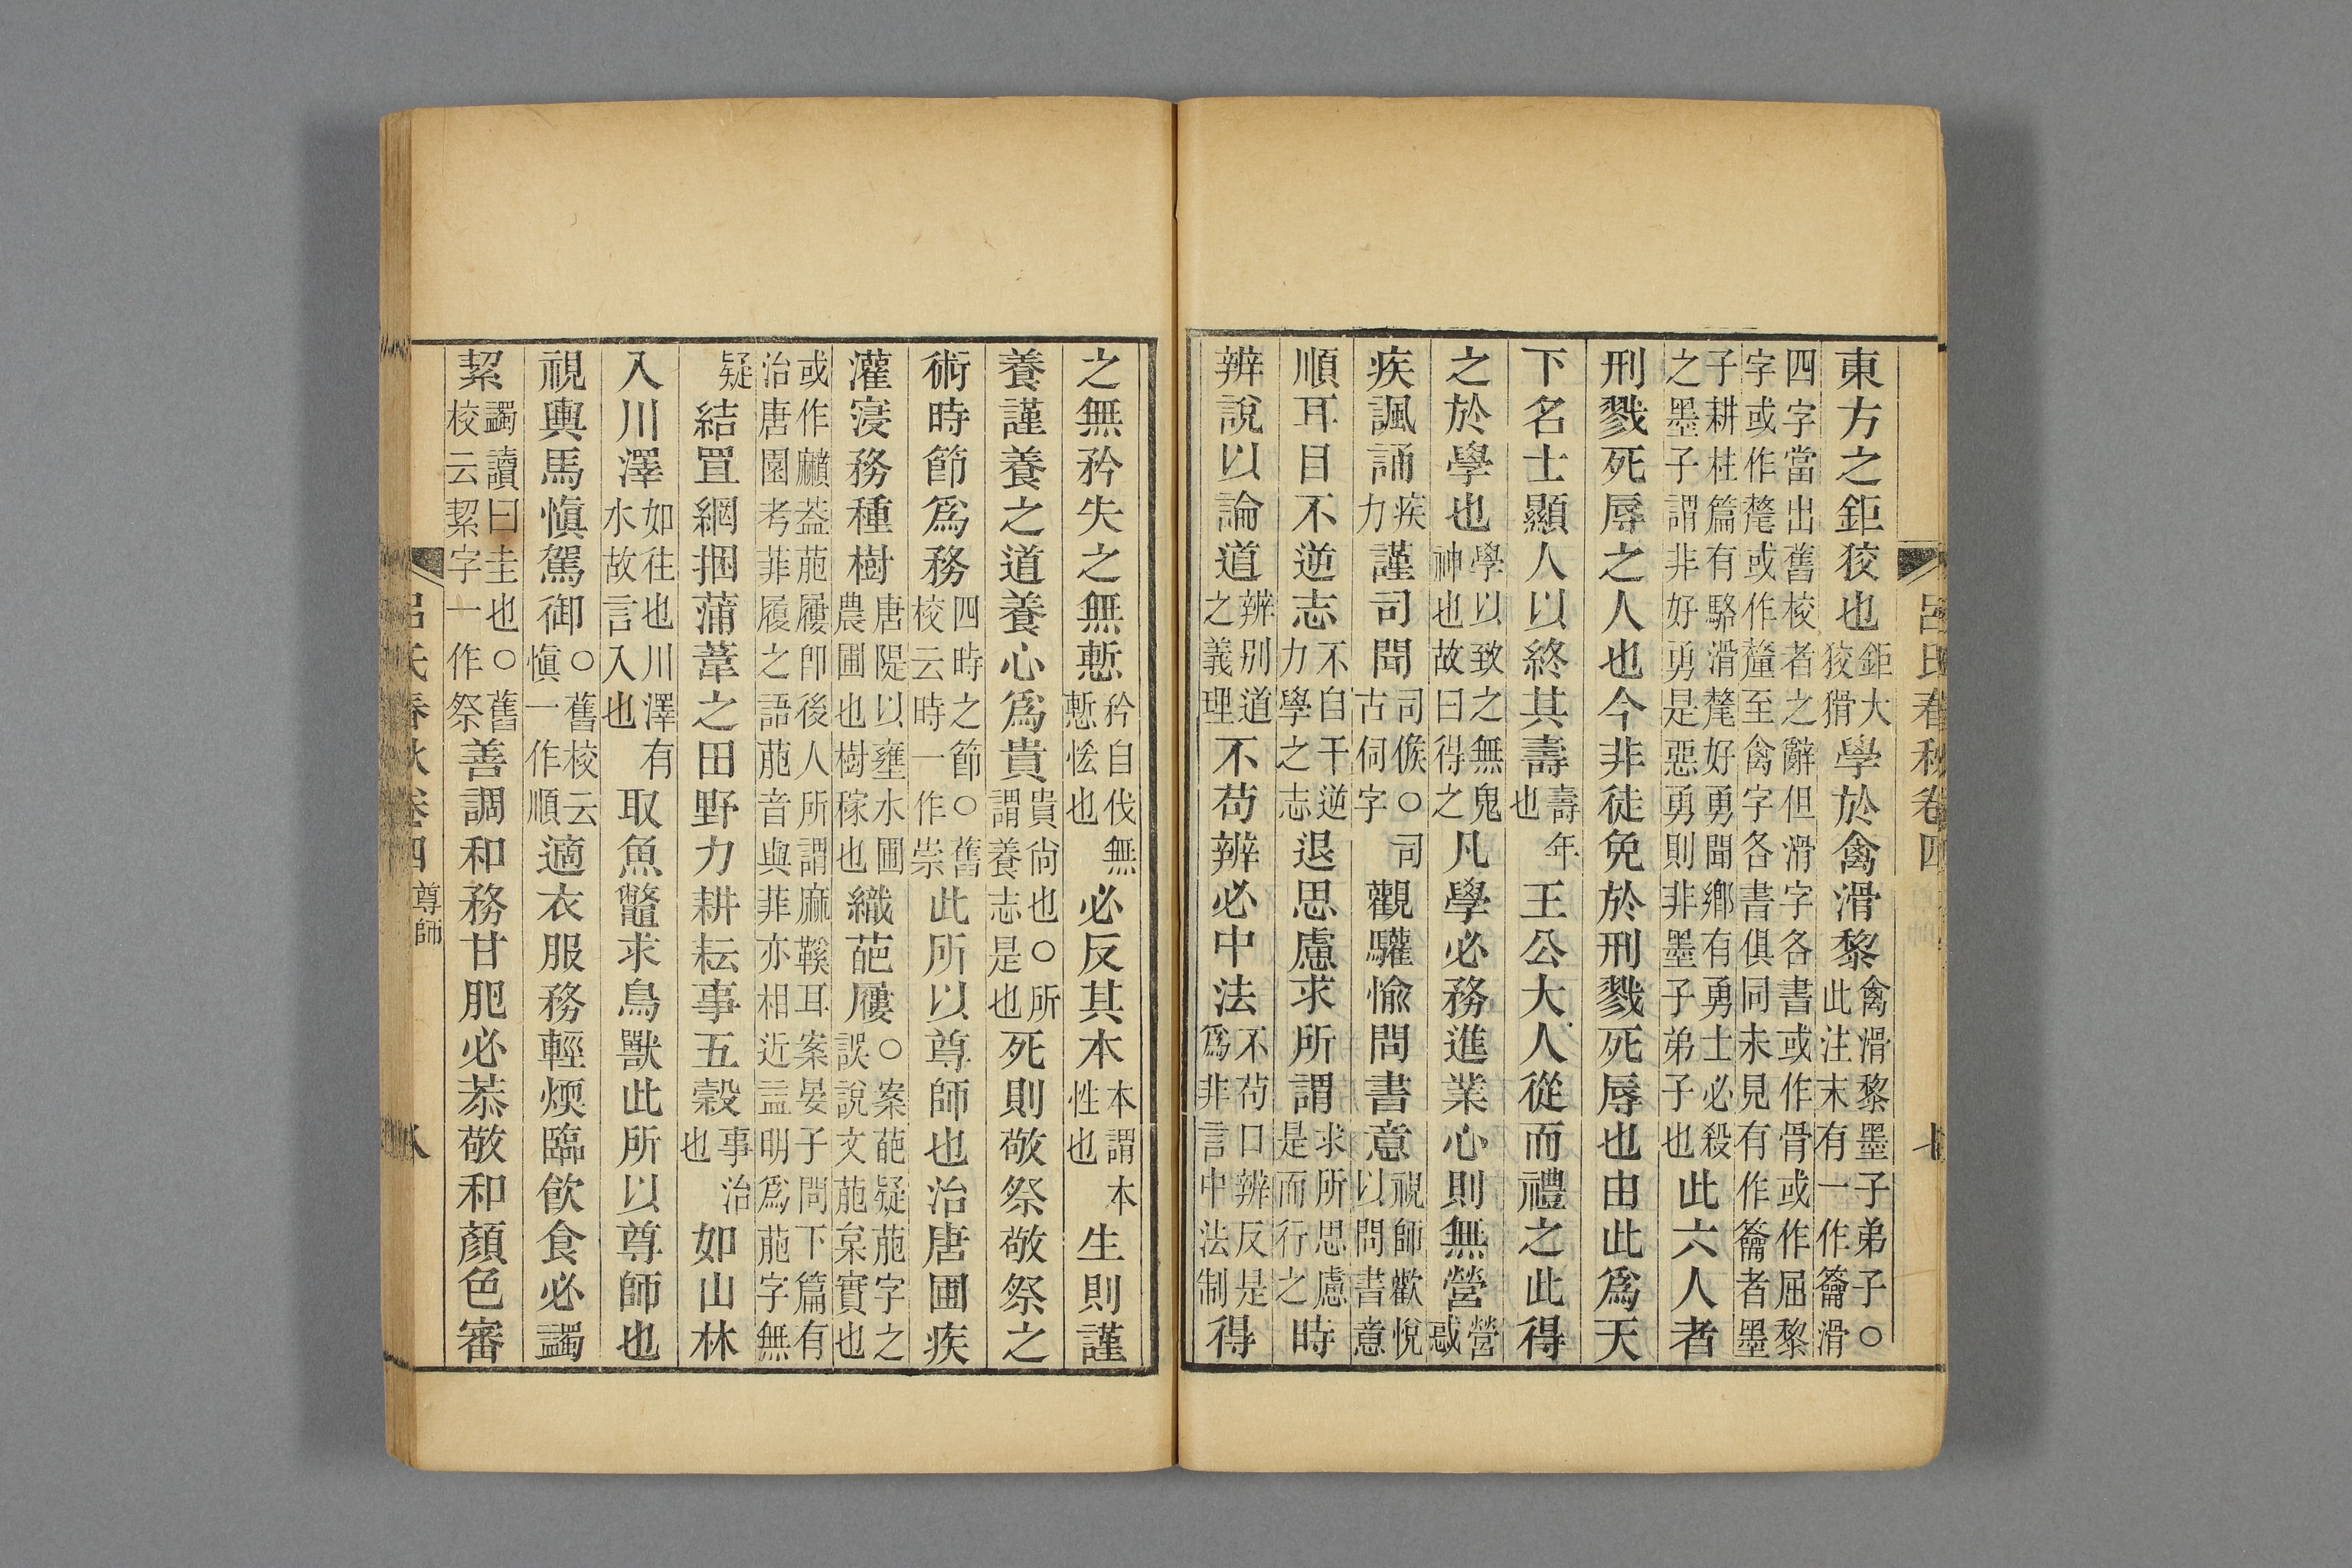 呂氏春秋卷四 七
東方之鉅狡也鉅大狡猾學於禽滑黎禽滑黎墨子弟子○此注末有一作籥滑
四字當出舊校者之辭但滑字各書或作骨或作屈黎字或作氂或作釐至禽字各書俱同未見有作籥者墨
子耕柱篇有駱滑氂好勇聞鄉有勇士必殺之墨子謂非好勇是惡勇則非墨子弟子也此六人者
刑戮死辱之人也今非徒免於刑戮死辱也由此爲天
下名士顯人以終其壽壽年也王公大人從而禮之此得
之於學也學以致之無鬼神也故曰得之凡學必務進業心則無營營惑
疾諷誦疾力謹司聞司候○司古伺字觀驩愉問書意視師歡悅以問書意
順耳目不逆志不自干逆力學之志退思慮求所謂求所思慮是而行之時
辨說以論道辨別道之義理不苟辨必中法不苟口辨反是爲非言中法制得
之無矜失之無慙矜自伐無慙恡也必反其本本謂本性也生則謹
養謹養之道養心爲貴貴尙也○所謂養志是也死則敬祭敬祭之
術時節爲務四時之節○舊校云時一作祟此所以尊師也治唐圃疾
灌寖務種樹唐隄以壅水圃農圃也樹稼也織葩屨○案葩疑萉字之誤說文萉枲實也
或作黂葢萉屨卽後人所謂麻鞵耳案晏子問下篇有治唐園考菲履之語萉音與菲亦相近畢明爲萉字無
疑結罝網捆蒲葦之田野力耕耘事五穀事治也如山林
入川澤如往也川澤有水故言入也取魚鼈求鳥獸此所以尊師也
視輿馬愼駕御○舊校云愼一作順適衣服務輕煗臨飮食必蠲
絜蠲讀曰圭也○舊校云絜字一作祭善調和務甘肥必恭敬和顏色審
呂氏春秋卷四 尊師 八